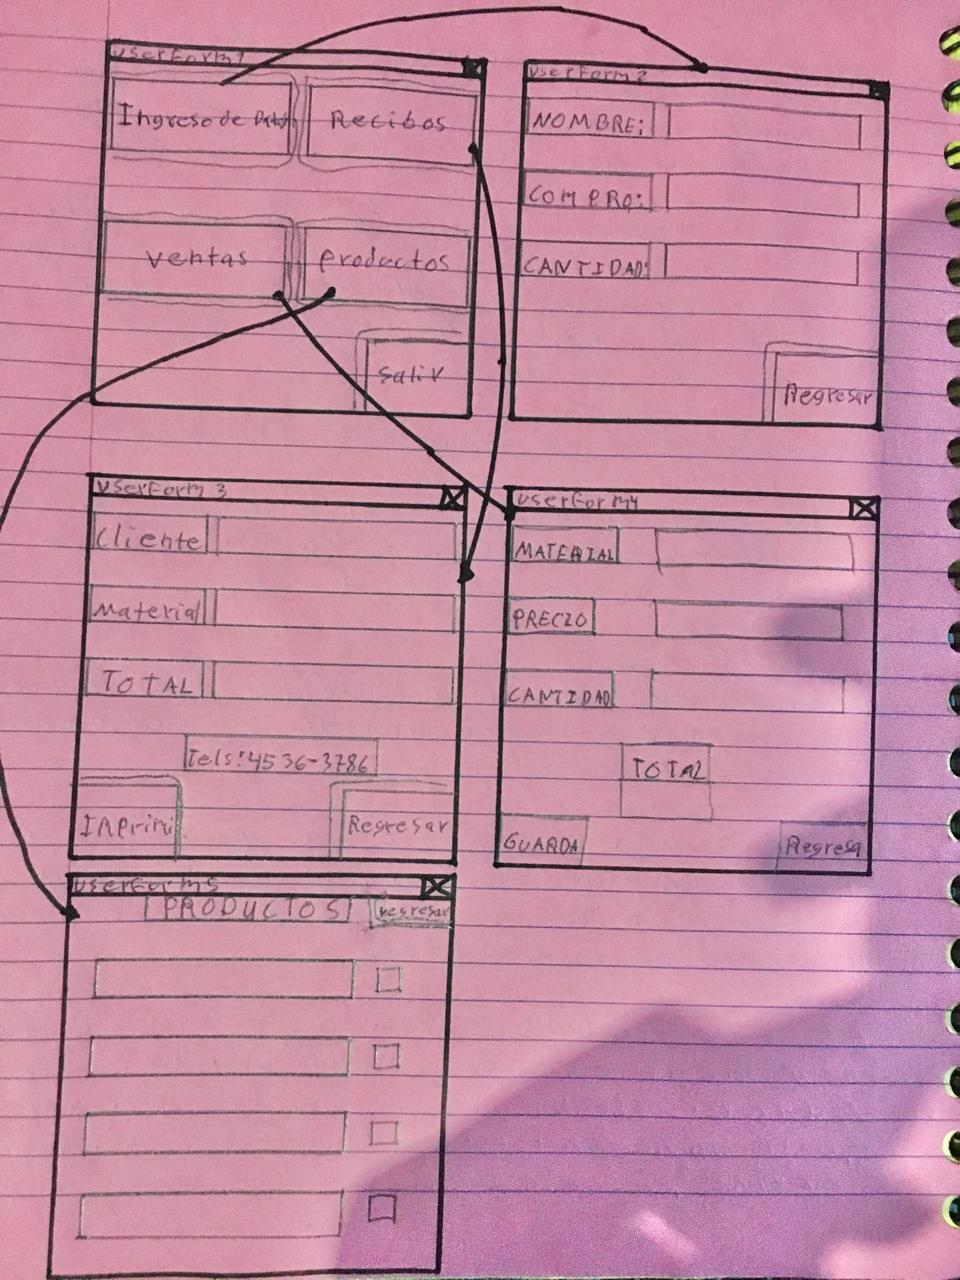 UserForm1
Ingreso de Datos
Recibos
ventas
productos
Salir
UserForm 2
NOMBRE:
COMPRO:
CANTIDAD:
Regresar
UserForm 3
Cliente
Material
TOTAL
Tels:4536-3786
IMprimi
Regresar
UserForm4
MATERIAL
PRECIO
CANTIDAD
TOTAL
GUARDA
Regresa
UserForm5
PRODUCTOS
regresar